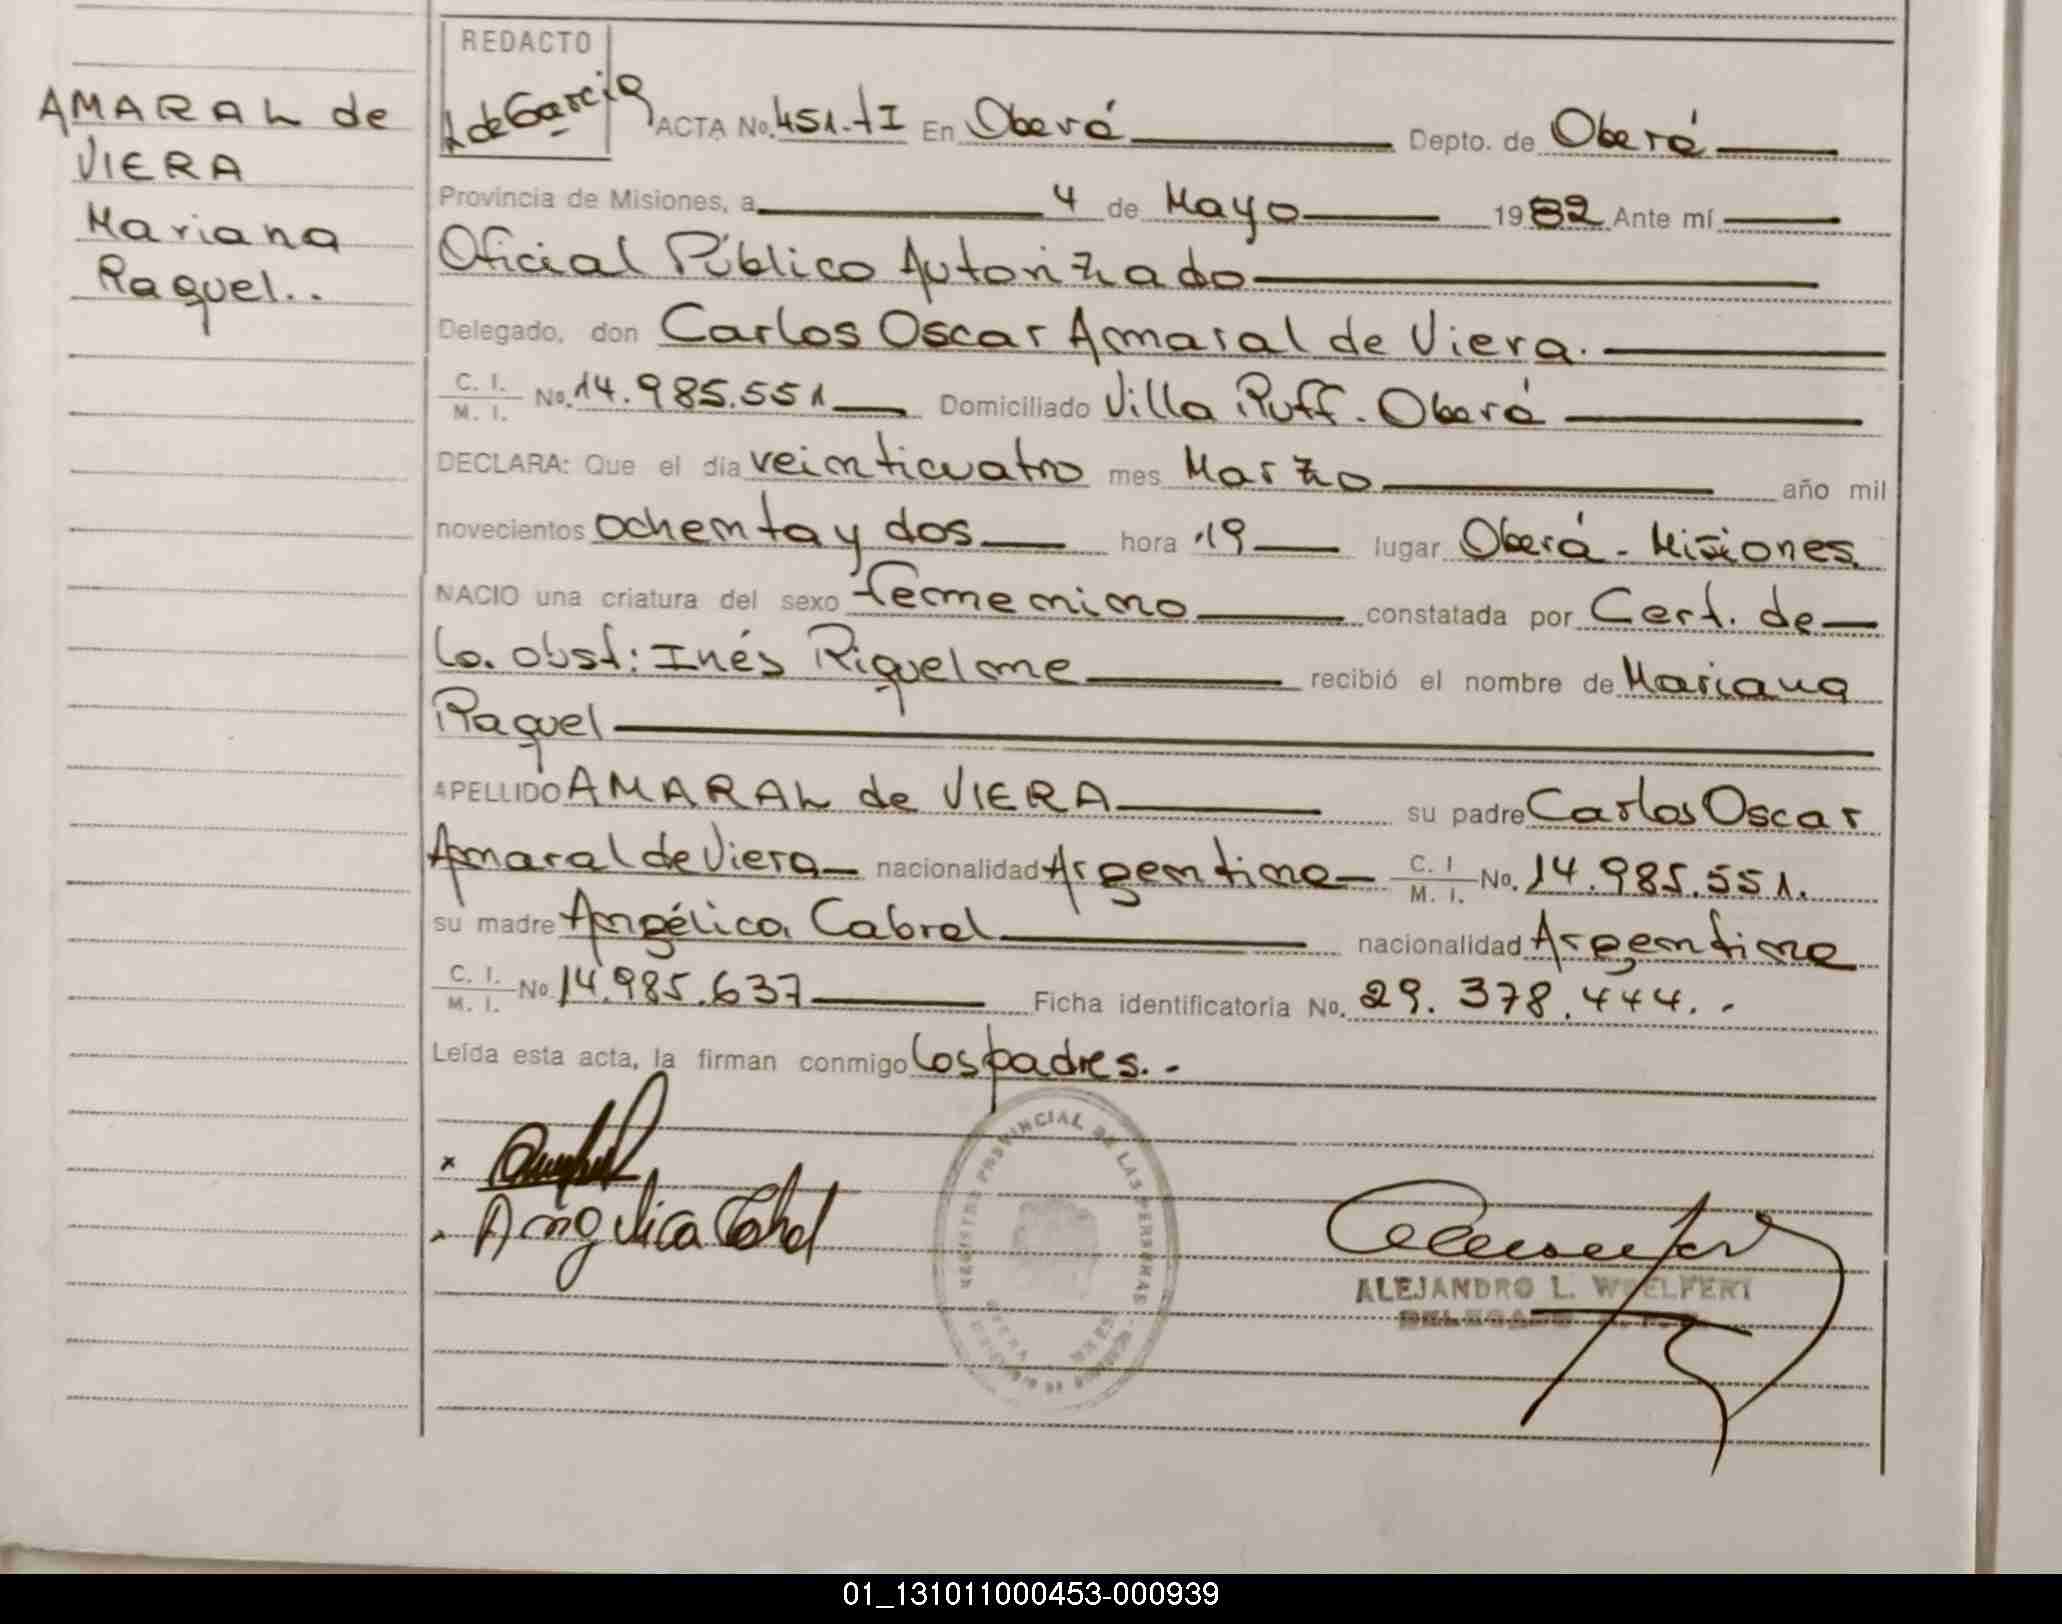 REDACTO
L de Garcia
AMARAL de
VIERA
Mariana
Raquel..
ACTA No. 451-tI En Oberá Depto. de Oberá
Provincia de Misiones, a 4 de Mayo 1982 Ante mí
Oficial Público Autorizado
Delegado, don Carlos Oscar Amaral de Viera.
C. I.
M. I. No. 14.985.551 Domiciliado Villa Ruff. Oberá
DECLARA: Que el día veinticuatro mes Marzo año mil
novecientos ochenta y dos hora 19 lugar Oberá - Misiones
NACIO una criatura del sexo femenino constatada por Cert. de
la. obst: Inés Riquelme recibió el nombre de Mariana
Raquel
APELLIDO AMARAL de VIERA su padre Carlos Oscar
Amaral de Viera nacionalidad Argentina C. I.
M. I. No. 14.985.551.
su madre Angélica Cabral nacionalidad Argentina
C. I.
M. I. No. 14.985.637 Ficha identificatoria No. 29.378.444.-
Leída esta acta, la firman conmigo los padres.-
Angelica Cabral
REGISTRO PROVINCIAL DE LAS PERSONAS
ALEJANDRO L. WOELFERT
DELEGADO
01_131011000453-000939